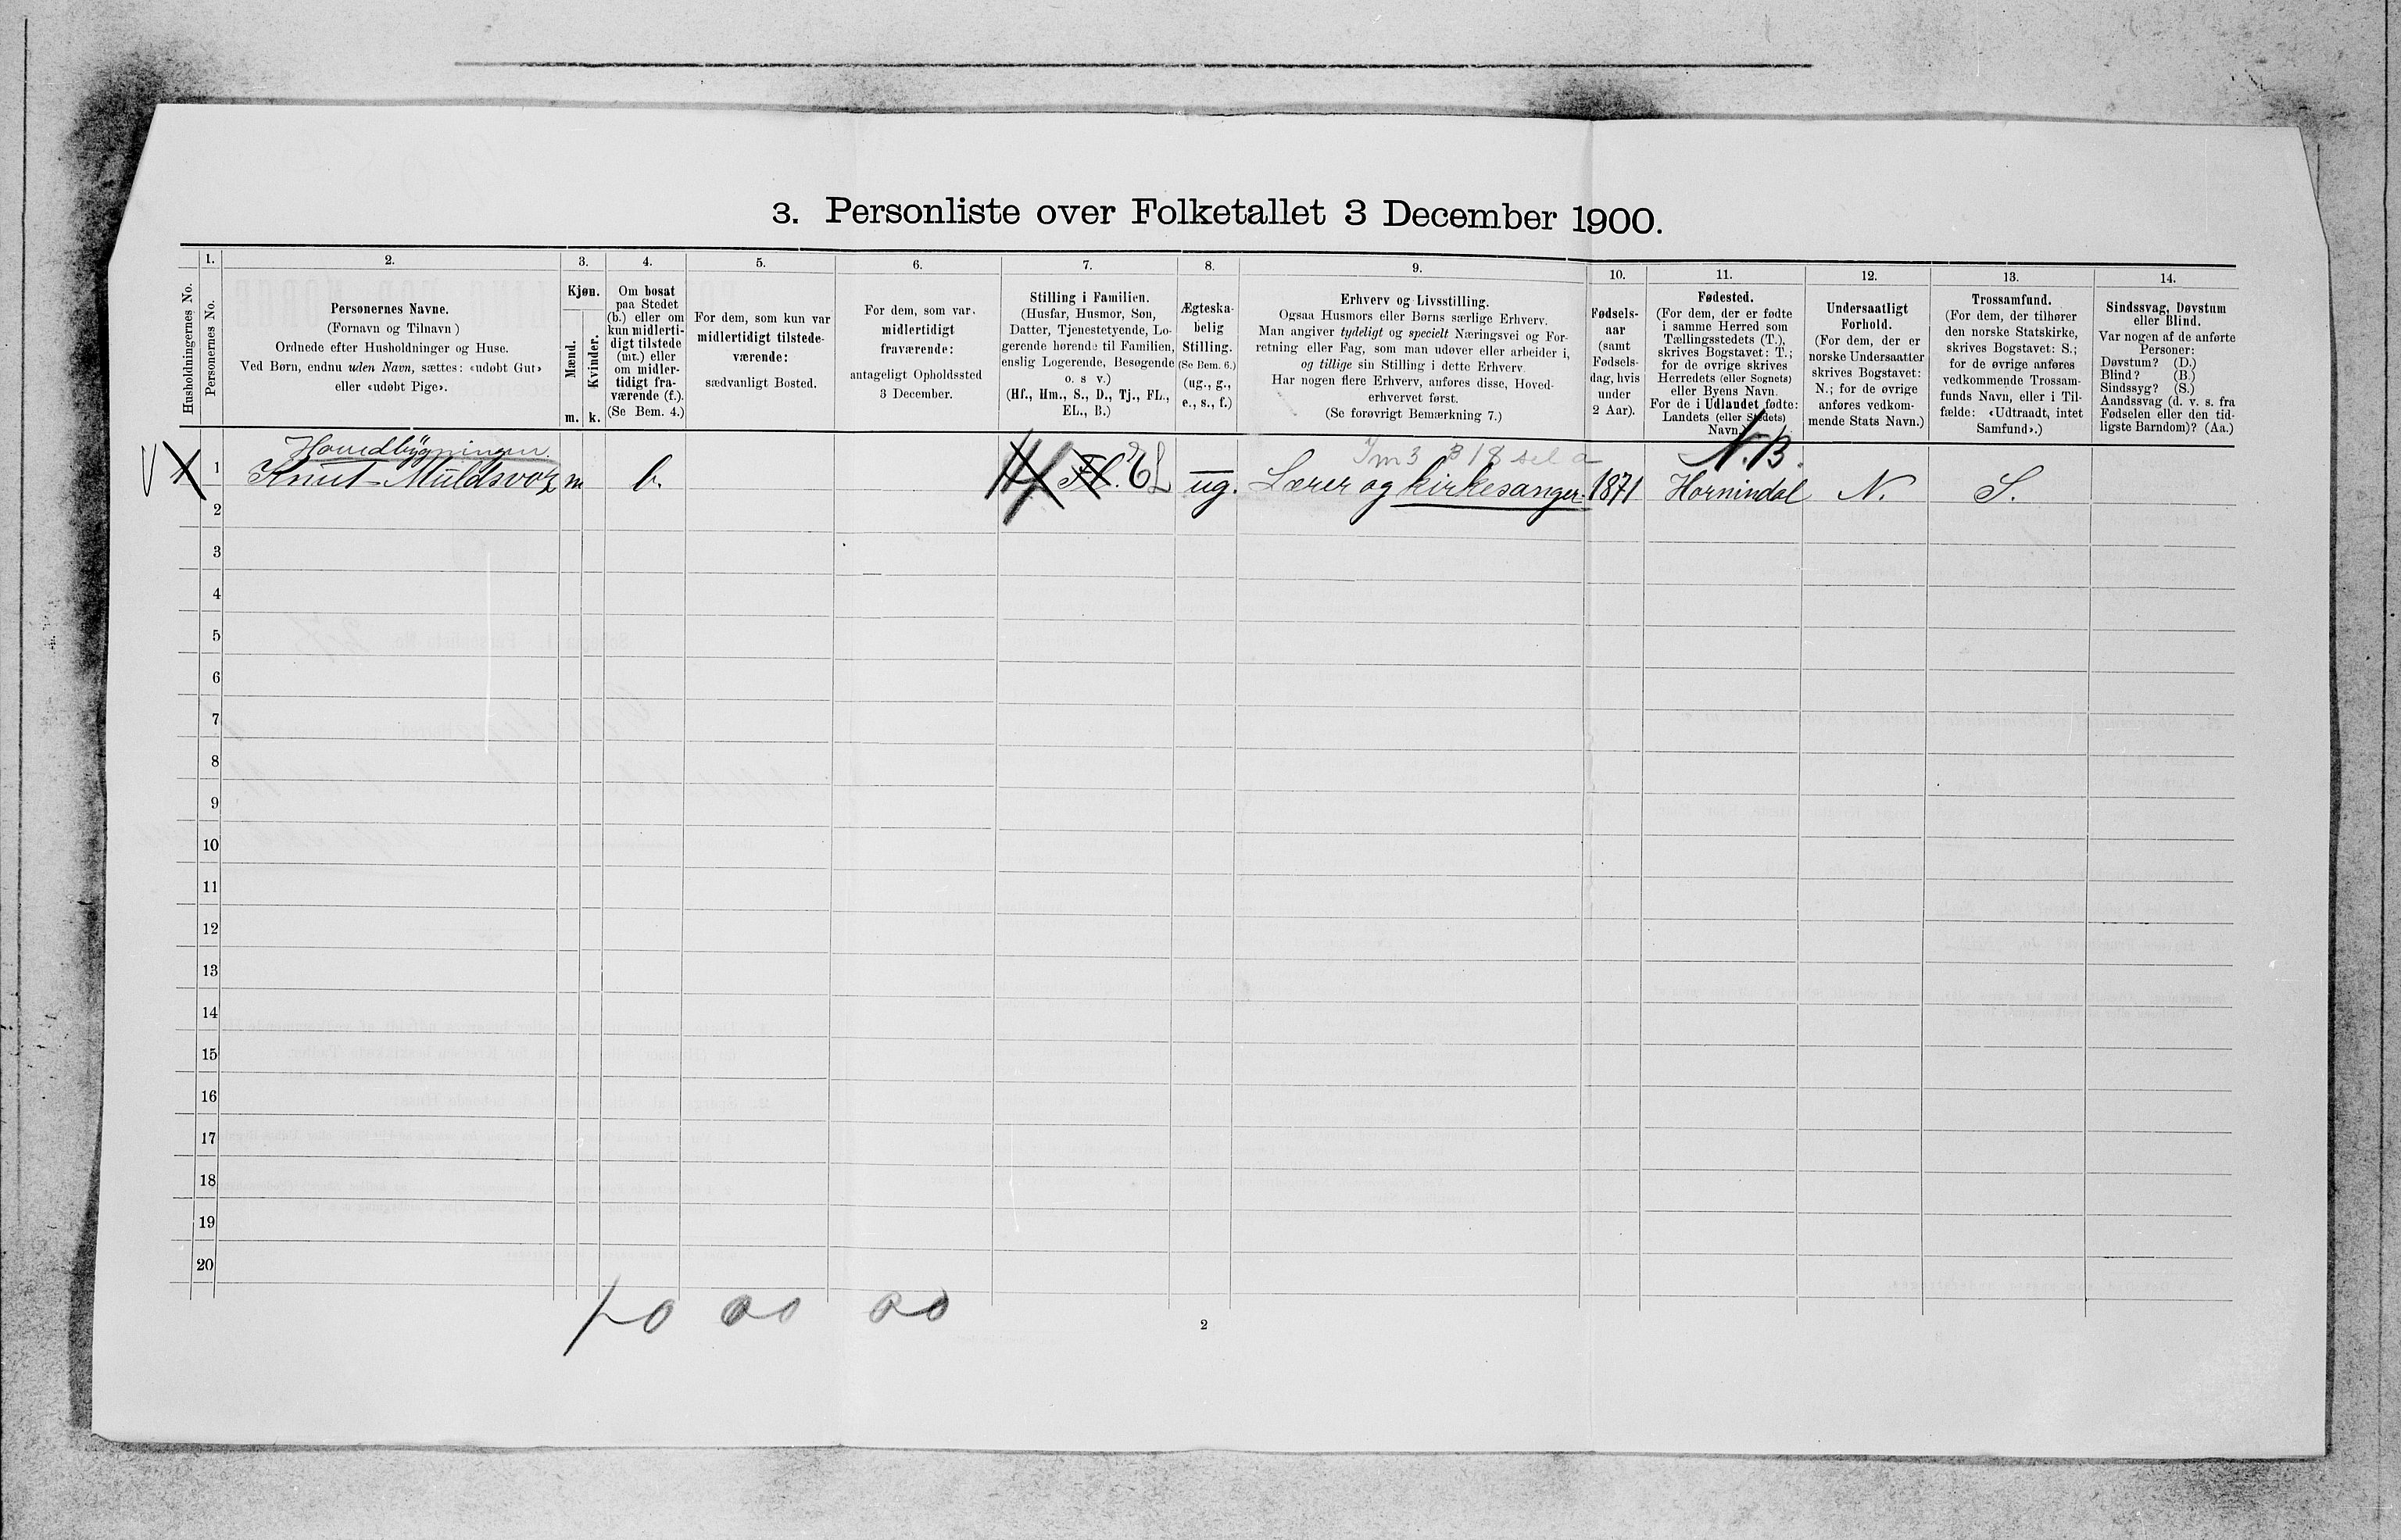 3. Personliste over Folketallet 3 December 1900.
1. 2. 3. 4. 5. 6. 7. 8. 9. 10. 11. 12. 13. 14.
Husholdningernes No.
Personernes No.
Personernes Navne.
(Fornavn og Tilnavn )
Ordnede efter Husholdninger og Huse.
Ved Børn, endnu uden Navn, sættes: «udøbt Gut»
eller «udøbt Pige».
Kjøn.
Mænd.
Kvinder.
m. k.
Om bosat
paa Stedet
(b.) eller om
kun midlerti-
digt tilstede
(mt.) eller
om midler-
tidigt fra-
værende (f.).
(Se Bem. 4.)
For dem, som kun var
midlertidigt tilstede-
værende:
sædvanligt Bosted.
For dem, som var
midlertidigt
fraværende:
antageligt Opholdssted
3 December.
Stilling i Familien.
(Husfar, Husmor, Søn,
Datter, Tjenestetyende, Lo-
gerende hørende til Familien,
enslig Logerende, Besøgende
o. s v.)
(Hf., Hm., S., D., Tj., FL.,
EL., B.)
Ægteska-
belig
Stilling.
(Se Bem. 6.)
(ug., g.,
e., s., f.)
Erhverv og Livsstilling.
Ogsaa Husmors eller Børns særlige Erhverv.
Man angiver tydeligt og specielt Næringsvei og For-
retning eller Fag, som man udøver eller arbeider i,
og tillige sin Stilling i dette Erhverv.
Har nogen flere Erhverv, anføres disse, Hoved-
erhvervet først.
(Se forøvrigt Bemærkning 7.)
Fødsels-
aar
(samt
Fødsels-
dag, hvis
under
2 Aar).
Fødested.
(For dem, der er fødte
i samme Herred som
Tællingsstedets (T.),
skrives Bogstavet: T.;
for de øvrige skrives
Herredets (eller Sognets)
eller Byens Navn.
For de i Udlandet fødte:
Landets (eller Stedets)
Navn.)
Undersaatligt
Forhold.
(For dem, der er
norske Undersaatter
skrives Bogstavet:
N.; for de øvrige
anføres vedkom-
mende Stats Navn.)
Trossamfund.
(For dem, der tilhører
den norske Statskirke,
skrives Bogstavet: S.;
for de øvrige anføres
vedkommende Trossam-
funds Navn, eller i Til-
fælde: «Udtraadt, intet
Samfund».)
Sindssvag, Døvstum
eller Blind.
Var nogen af de anførte
Personer:
Døvstum? (D.)
Blind? (B.)
Sindssyg? (S.)
Aandssvag (d. v. s. fra
Fødselen eller den tid-
ligste Barndom)? (Aa.)
Hovedbygningen. N.B.
1 Knut Muldsvor m b. EL ug. Lærer og kirkesanger 1871 Hornindal N. S.
2
3
4
5
6
7
8
9
10
11
12
13
14
15
16
17
18
19
20
1-0 00 00
2